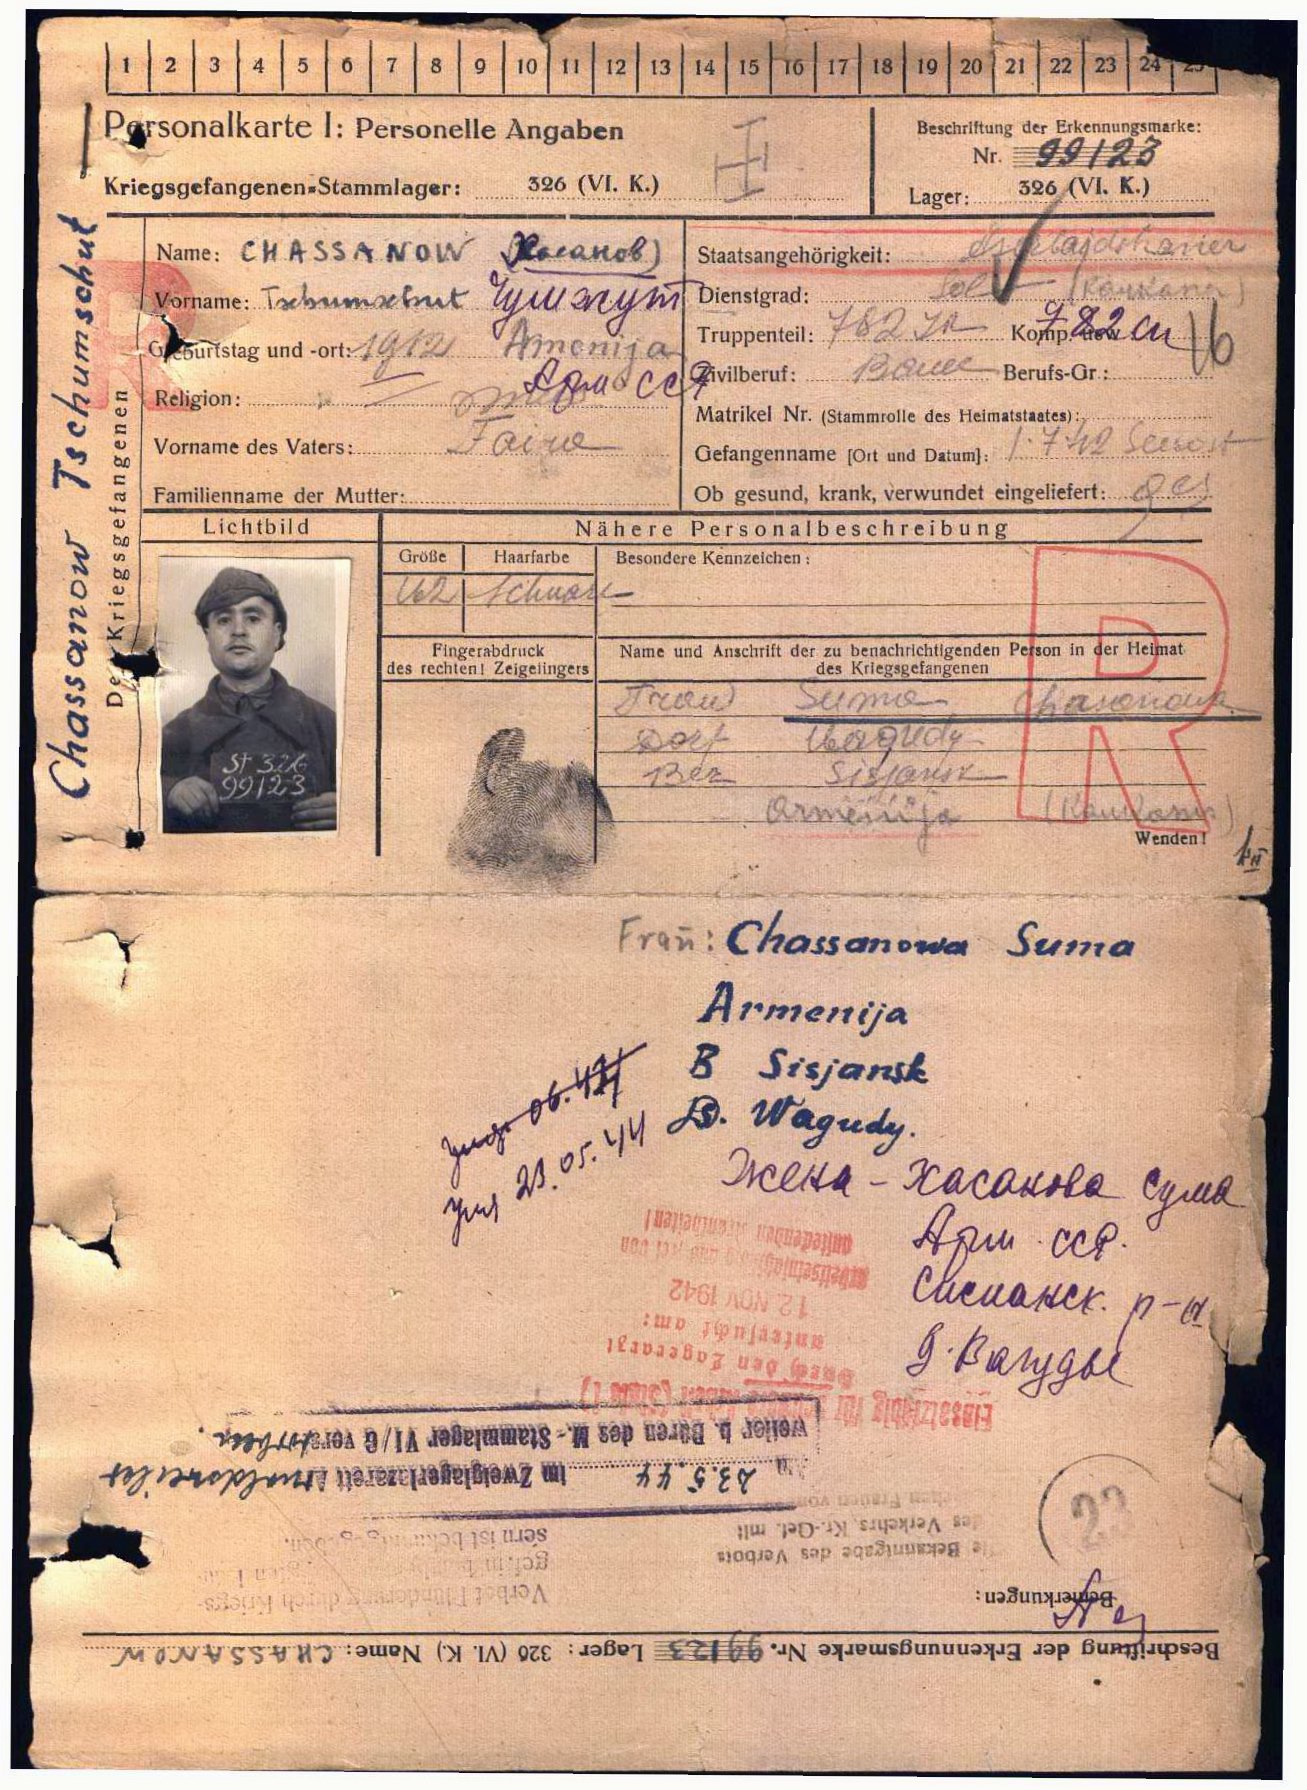 1 2 3 4 5 6 7 8 9 10 11 12 13 14 15 16 17 18 19 20 21 22 23 24 25
Personalkarte I: Personelle Angaben
Kriegsgefangenen-Stammlager: 326 (VI. K.)
Beschriftung der Erkennungsmarke:
Nr. 99123
Lager: 326 (VI. K.)
Chassanow Tschumschut
Des Kriegsgefangenen
R
Name: CHASSANOW (Хасанов)
Vorname: Tschumschut Чумшут
Geburtstag und -ort: 1912 Armenija
Арм ССР
Religion:
Vorname des Vaters:
Familienname der Mutter:
Staatsangehörigkeit:
Dienstgrad: Sol (Kaukasier)
Truppenteil: 782 JR Komp. usw. 782 сп
16
Zivilberuf: Bauer Berufs-Gr.:
Matrikel Nr. (Stammrolle des Heimatstaates):
Gefangenname [Ort und Datum]: 1.7.42
Ob gesund, krank, verwundet eingeliefert: ges
Lichtbild
St 326
99123
Nähere Personalbeschreibung
Größe Haarfarbe Besondere Kennzeichen:
162 schwarz
Fingerabdruck
des rechten! Zeigefingers
Name und Anschrift der zu benachrichtigenden Person in der Heimat
des Kriegsgefangenen
Frau Suma Chasanowa
Dorf Wagudy
Bez Sisjansk
Armenija (Kaukasus)
R
Wenden!
Frau: Chassanowa Suma
Armenija
B Sisjansk
D. Wagudy.
06.44
ум 23.05.44
Жена - Хасанова Сума
Арм. ССР.
Сисианск. р-н
д. Вагуды
arbeitseinsatzfähig und frei von
ansteckenden Krankheiten!
12. NOV 1942
untersucht am:
Durch den Lagerarzt
Einsatzfähig für
weiler b. Düren des M.-Stammlager VI/G verstorben.
23.5.44 im Zweiglagerlazarett Arnoldsweiler
Die Bekanntgabe des Verbots
des Verkehrs Kr.-Gef. mit
Verbot Plünderung durch Kriegs-
sern ist bekanntgegeben.
23
Bemerkungen:
Beschriftung der Erkennungsmarke Nr. 99123 Lager: 326 (VI. K.) Name: CHASSANOW